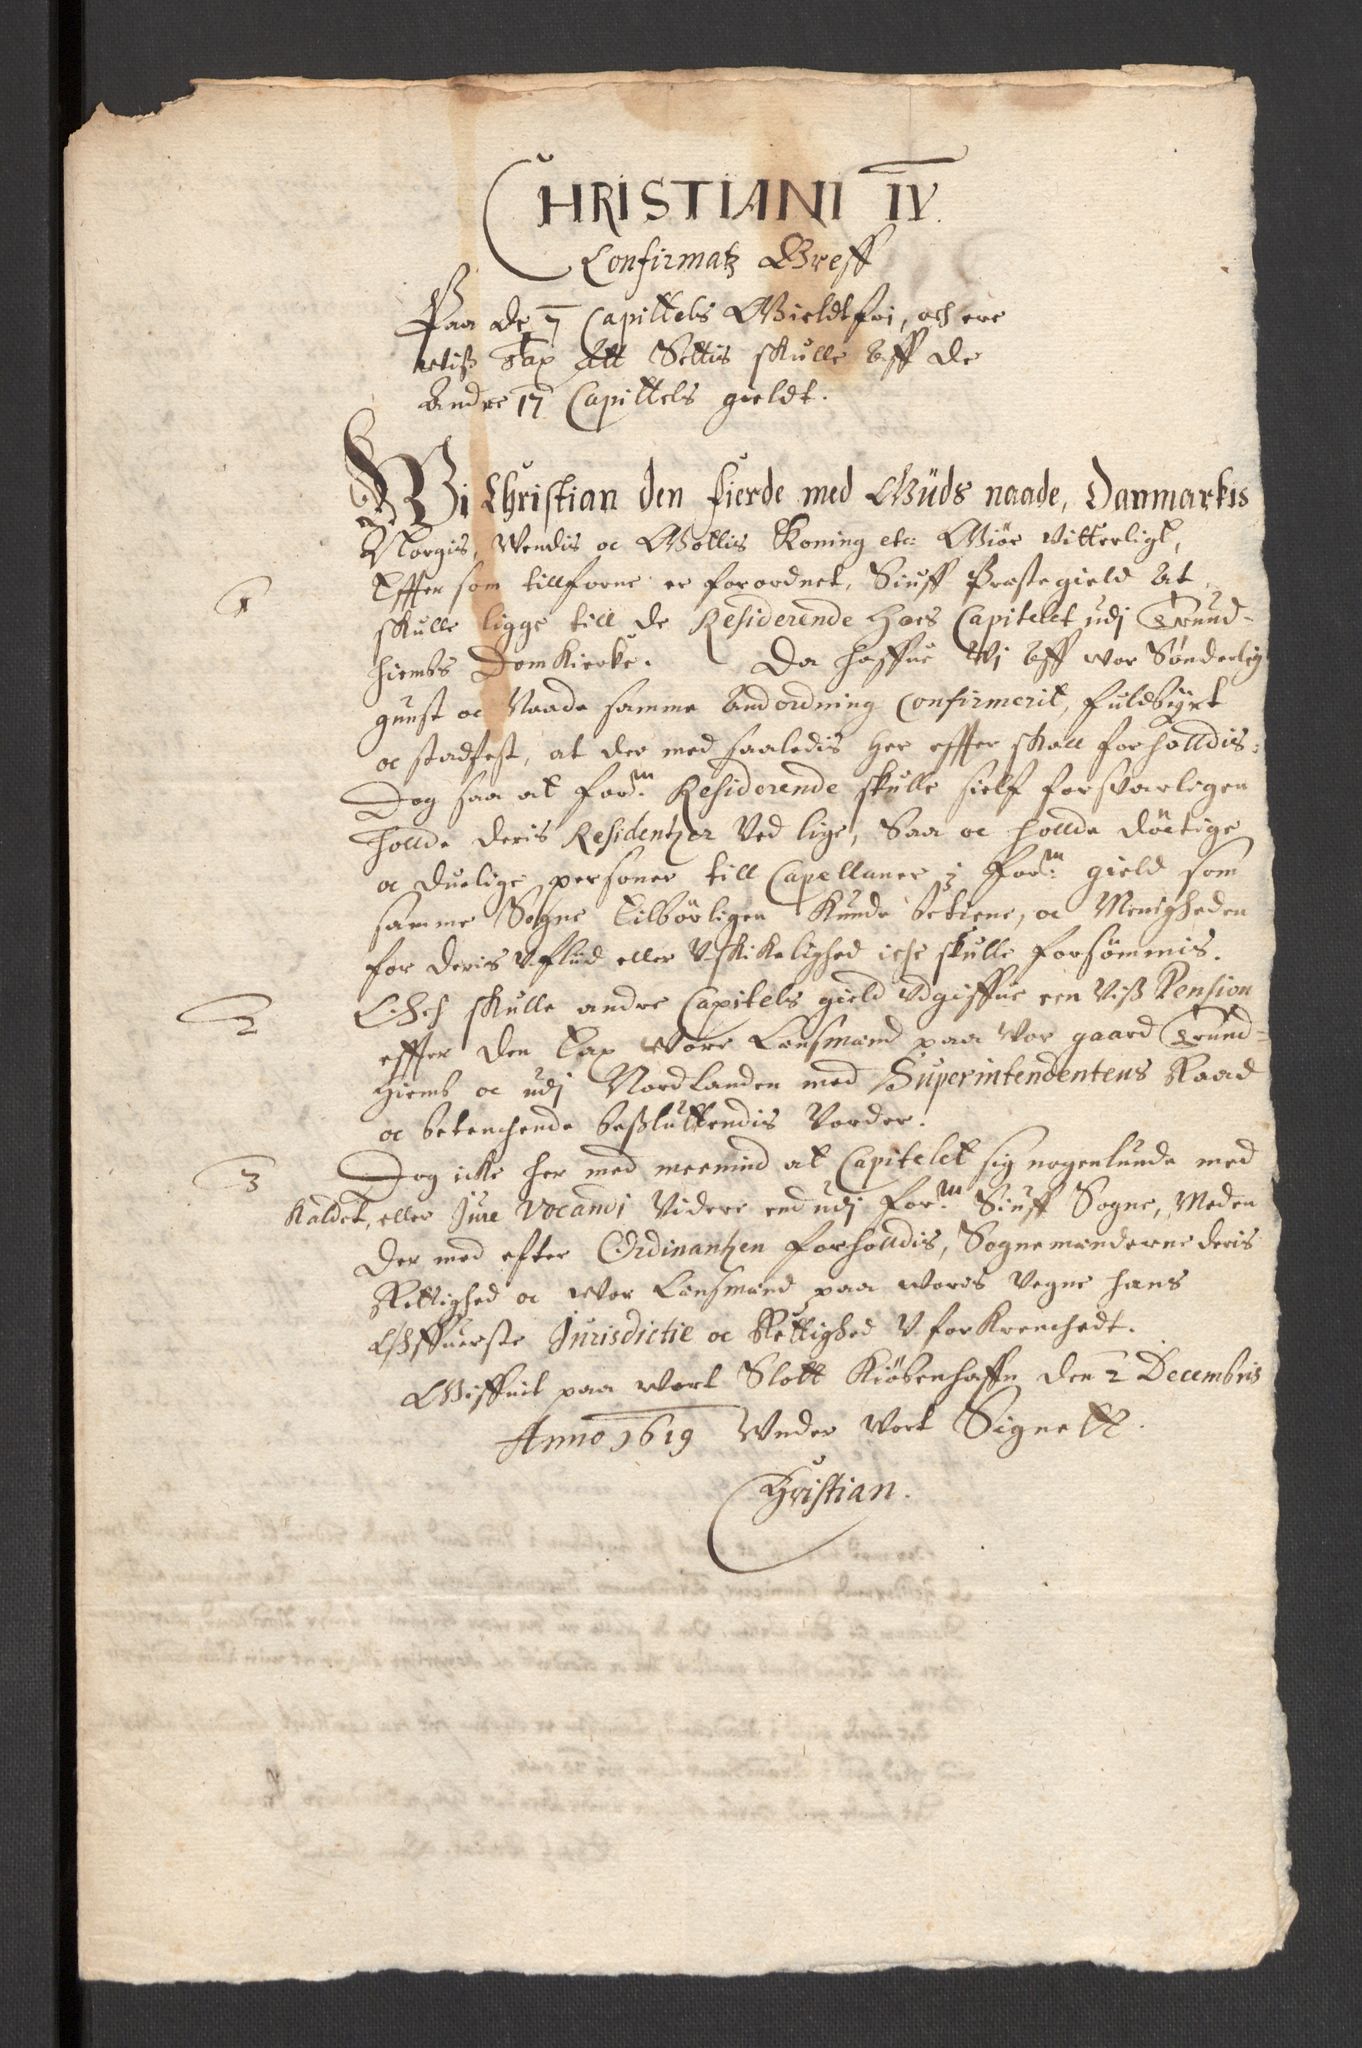 CHRISTIANI IV.
Confirmatz Breff
Paa de 7 Capittels Gieldt fri, och en
wiss Tax Att Settis skulle Aff de
Andre 17 Capittels gieldt.
Wi Christian den Fierde med Guds naade, Danmarkis
Norgis, Wendis oc Gottis Koning etc: Giør vitterligt,
1
Effter som tillforne er forordnet, Siuff Præstegield At
skulle ligge till de Residerende Hoes Capitelet udj Trund-
hiembs DomKircke. Da haffue Wj Aff wor Sønderlig
gunst oc Naade samme Andordning Confirmerit, fuldbyrt
oc stadfest, at der med saaledis her effter skall forholldis:
Dog saa at for.m Residerende skulle sielf forsvarligen
hollde deris Residentzer Ved lige, Saa oc hollde döctige
oc duelige personer till Capellaner i for.m gield som
samme Sogne tilbørligen Kunde betiene, oc Menigheden
for deris Vflid eller Vskikelighed iche skulle forsömmis.
2
Och skulle andre Capitels gield Vdgiffue een Viss Pension
effter den Tax Wore Lensmænd paa Vor gaard Trund-
hiemb oc udj NordLanden med Superintendentens Raad
oc betenchende besluttendis Vorder.
3
Dog icke her med meenind at Capitelet sig nogenlunde med
Kaldet, eller Jure Vocandi Videre end udj for.m Siuff Sogne, Meden
der med efter Ordinantzen forholldis, Sognemænderne deris
Rettighed oc Wor Lensmænd paa Wores Vegne hans
Offuerste Jurisdictie oc Rettighed Vforkrenchedt.
Giffuit paa wort Slott Kiöbenhaffn den 2 Decembris
Anno 1619 Vnder Vort Signett.
Christian.